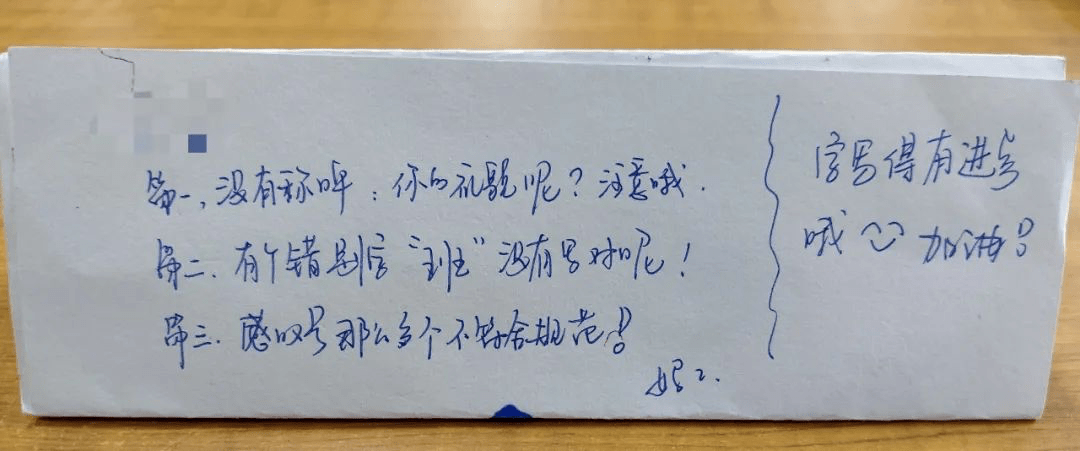 第一，没有称呼：你的礼貌呢？注意哦．
第二．有个错别字“班”没有写对呢！
第三．感叹号那么多个不符合规范！
妈妈．
字写得有进步
哦 加油！